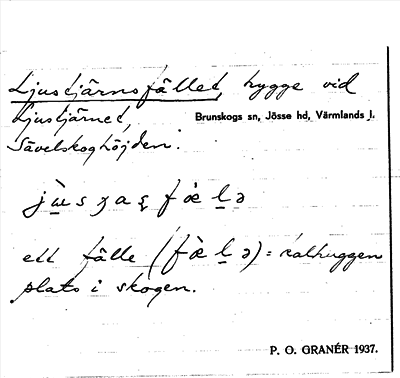 Ljustjärnsfället, hygge vid
Ljustjärnet, Brunskogs sn, Jösse hd, Värmlands l.
Sävelskoghöjden.
ett fälle (fæ̀l̠ə) = kalhuggen
plats i skogen.
P. O. GRANÉR 1937.